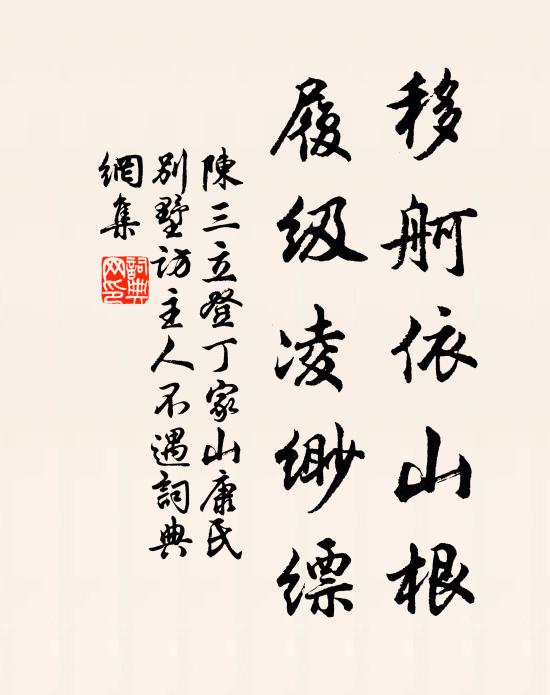 移舸依山根
履级凌缈缥
陳三立登丁家山康氏
别墅訪主人不遇詞典
網集
詞典
网印